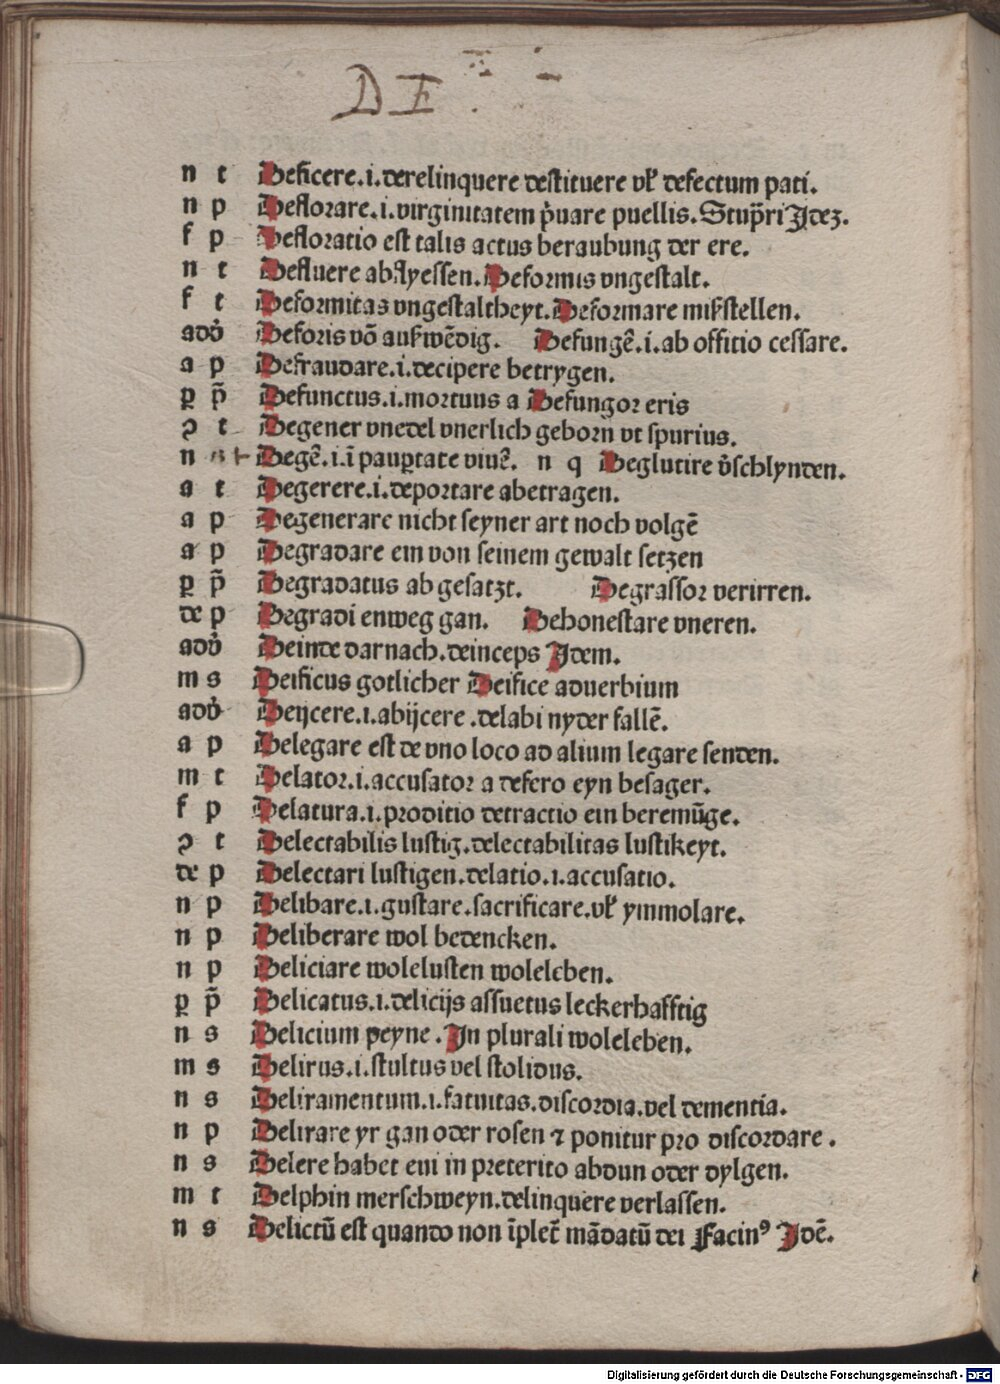 DE
n t Deficere.i.derelinquere destituere vl' defectum pati.
n p Deflorare.i.virginitatem p̄uare puellis.Stup̄ri Jdez.
f p Defloratio est talis actus beraubung der ere.
n t Defluere abflyessen.Deformis vngestalt.
f t Deformitas vngestaltheyt.Deformare mißstellen.
adv̓ Deforis võ außwẽdig. Defungẽ.i.ab offitio cessare.
a p Defraudare.i.decipere betrygen.
ꝑ p̄ Defunctus.i.mortuus a Defungor eris
ꝯ t Degener vnedel vnerlich geborn vt spurius.
n t Degẽ.i.ĩ pauꝑtate viuẽ. n q Deglutire v̓schlynden.
a t Degerere.i.deportare abetragen.
a p Degenerare nicht seyner art noch volgẽ
a p Degradare ein von seinem gewalt setzen
ꝑ p̄ Degradatus ab gesatzt. Degrassor verirren.
de p Degradi enweg gan. Dehonestare vneren.
adv̓ Deinde darnach.deinceps Jdem.
m s Deificus gotlicher Deifice aduerbium
adv̓ Deijcere.i.abijcere.delabi nyder fallẽ.
a p Delegare est de vno loco ad alium legare senden.
m t Delator.i.accusator a defero eyn besager.
f p Delatura.i.proditio detractio ein beremũge.
ꝯ t Delectabilis lustig.delectabilitas lustikeyt.
de p Delectari lustigen.delatio.i.accusatio.
n p Delibare.i.gustare.sacrificare.vl' ymmolare.
n p Deliberare wol bedencken.
n p Deliciare wolelusten woleleben.
ꝑ p̄ Delicatus.i.delicijs assuetus leckerhafftig
n s Delicium peyne.Jn plurali woleleben.
m s Delirus.i.stultus vel stolidus.
n s Deliramentum.i.fatuitas.discordia.vel dementia.
n p Delirare yr gan oder rosen ⁊ ponitur pro discordare.
n s Delere habet eui in preterito abdun oder dylgen.
m t Delphin merschweyn.delinquere verlassen.
n s Delictũ est quando non ĩplet̃ mãdatũ dei Facinꝰ Jdẽ.
Digitalisierung gefördert durch die Deutsche Forschungsgemeinschaft - DFG